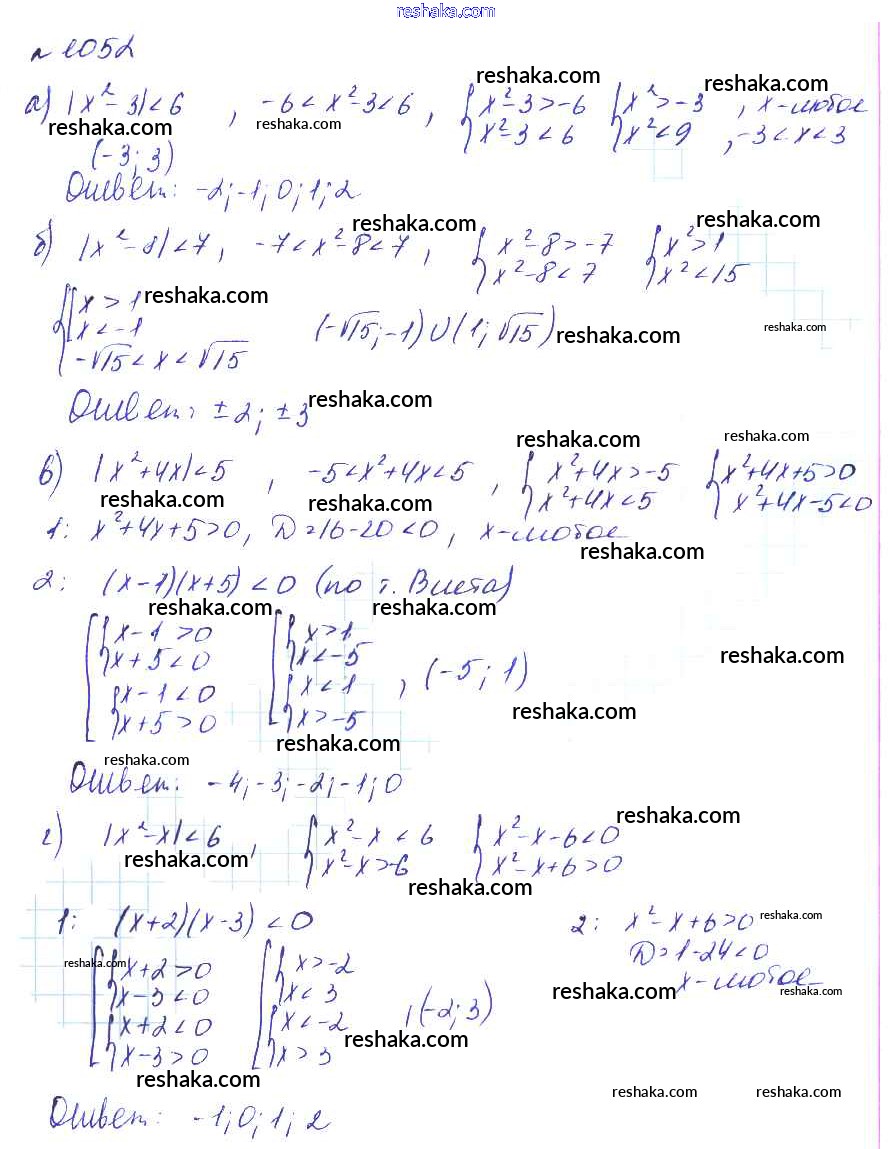 reshaka.com
№ 1052
а) |x²-3|<6 , -6<x²-3<6 , { x²-3>-6 { x²>-3 , x-любое
x²-3<6 x²<9 , -3<x<3
(-3; 3)
Ответ: -2; -1; 0; 1; 2
б) |x²-8|<7 , -7<x²-8<7 , { x²-8>-7 { x²>1
x²-8<7 x²<15
{ [ x>1
x<-1
-√15<x<√15 (-√15; -1) U (1; √15)
Ответ: ±2; ±3
в) |x²+4x|<5 , -5<x²+4x<5 , { x²+4x>-5 { x²+4x+5>0
x²+4x<5 x²+4x-5<0
1: x²+4x+5>0, D=16-20<0, x-любое
2: (x-1)(x+5)<0 (по т. Виета)
[ { x-1>0 [ { x>1
x+5<0 x<-5
{ x-1<0 { x<1 , (-5; 1)
x+5>0 x>-5
Ответ: -4; -3; -2; -1; 0
г) |x²-x|<6 , { x²-x<6 { x²-x-6<0
x²-x>-6 x²-x+6>0
1: (x+2)(x-3)<0 2: x²-x+6>0
D=1-24<0
x-любое
[ { x+2>0 [ { x>-2
x-3<0 x<3 , (-2; 3)
{ x+2<0 { x<-2
x-3>0 x>3
Ответ: -1; 0; 1; 2